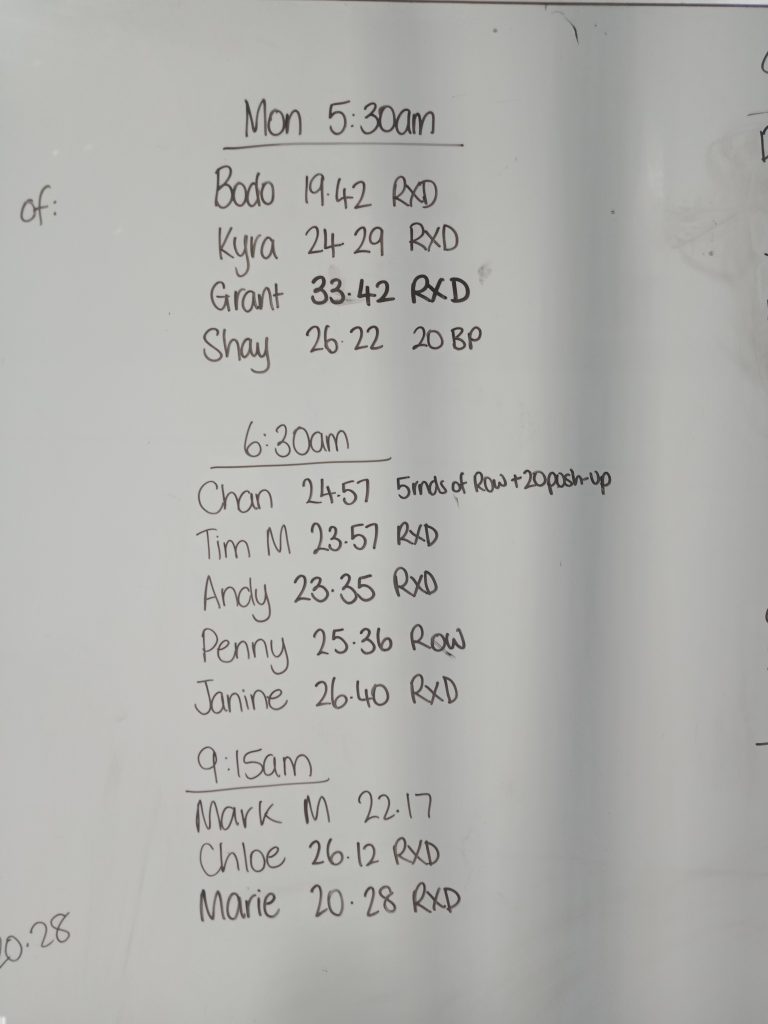 Mon 5:30am
of:
Bodo 19.42 RXD
Kyra 24 29 RXD
Grant 33.42 RXD
Shay 26.22 20 BP
6:30am
Chan 24.57 5rnds of Row + 20 posh-up
Tim M 23.57 RXD
Andy 23.35 RXD
Penny 25.36 Row
Janine 26.40 RXD
9:15am
Mark M 22.17
Chloe 26.12 RXD
Marie 20.28 RXD
0.28